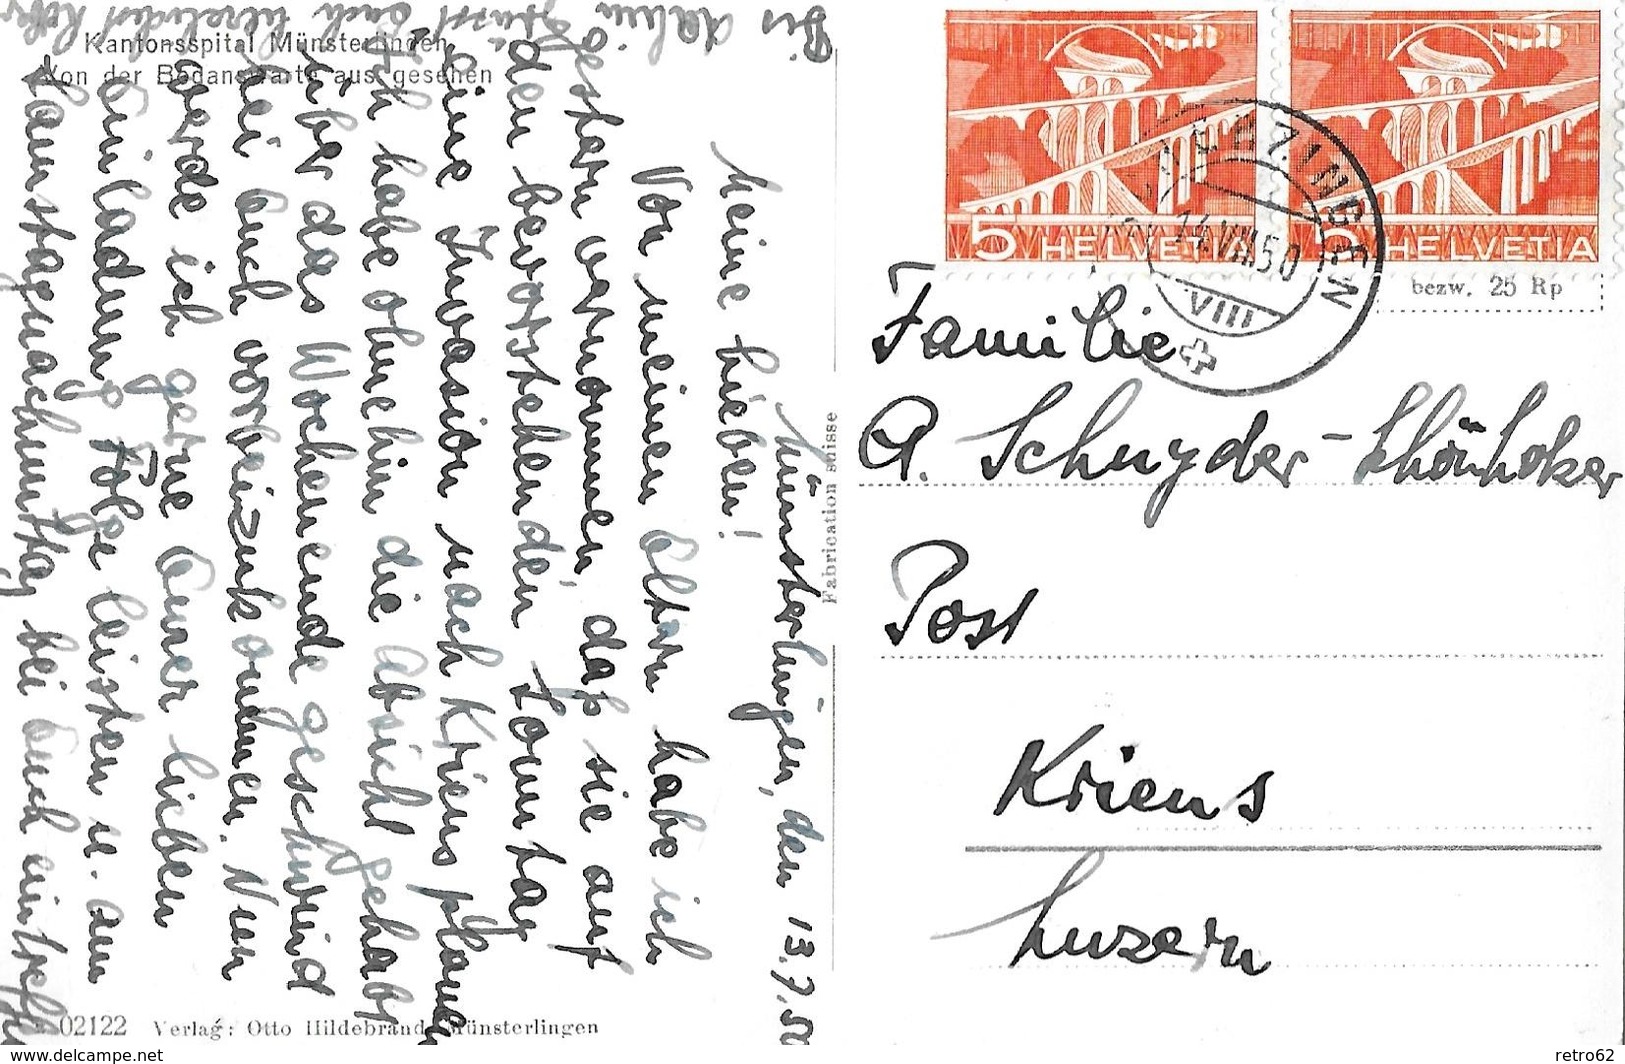 Kantonsspital Münsterlingen
Von der Bodanswarte aus gesehen
Münsterlingen, den 13.7.50
Meine Lieben!
Von meinen Eltern habe ich
gestern vernommen, daß sie auf
den bevorstehenden Sonntag
eine Invasion nach Kriens planen.
Ich habe ohnehin die Absicht gehabt
über das Wochenende geschwind
bei Euch vorbeizukommen. Nun
werde ich gerne Eurer lieben
Einladung Folge leisten u. am
Samstagnachmittag bei Euch
Bis dahin
grüsst Euch
Fabrication suisse
02122 Verlag: Otto Hildebrand, Münsterlingen
5 HELVETIA
5 HELVETIA
14.VII.50
VIII
bezw. 25 Rp
Familie
A. Schnyder-
Post
Kriens
Luzern
delcampe.net
retro62